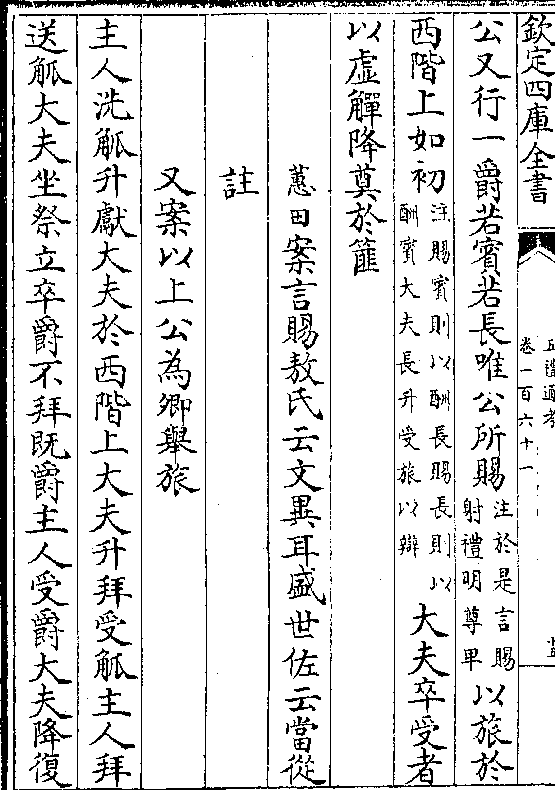 欽定四庫全書
五禮通考
卷一百六十一
公又行一爵若賓若長唯公所賜注於是言賜射禮明尊卑以旅於
西階上如初注賜賓則以酬長賜長則以酬賓大夫長升受旅以辯大夫卒受者
以虛觶降奠於篚
蕙田案言賜敖氏云文異耳盛世佐云當從
註
又案以上公為卿舉旅
主人洗觚升獻大夫於西階上大夫升拜受觚主人拜
送觚大夫坐祭立卒爵不拜既爵主人受爵大夫降復